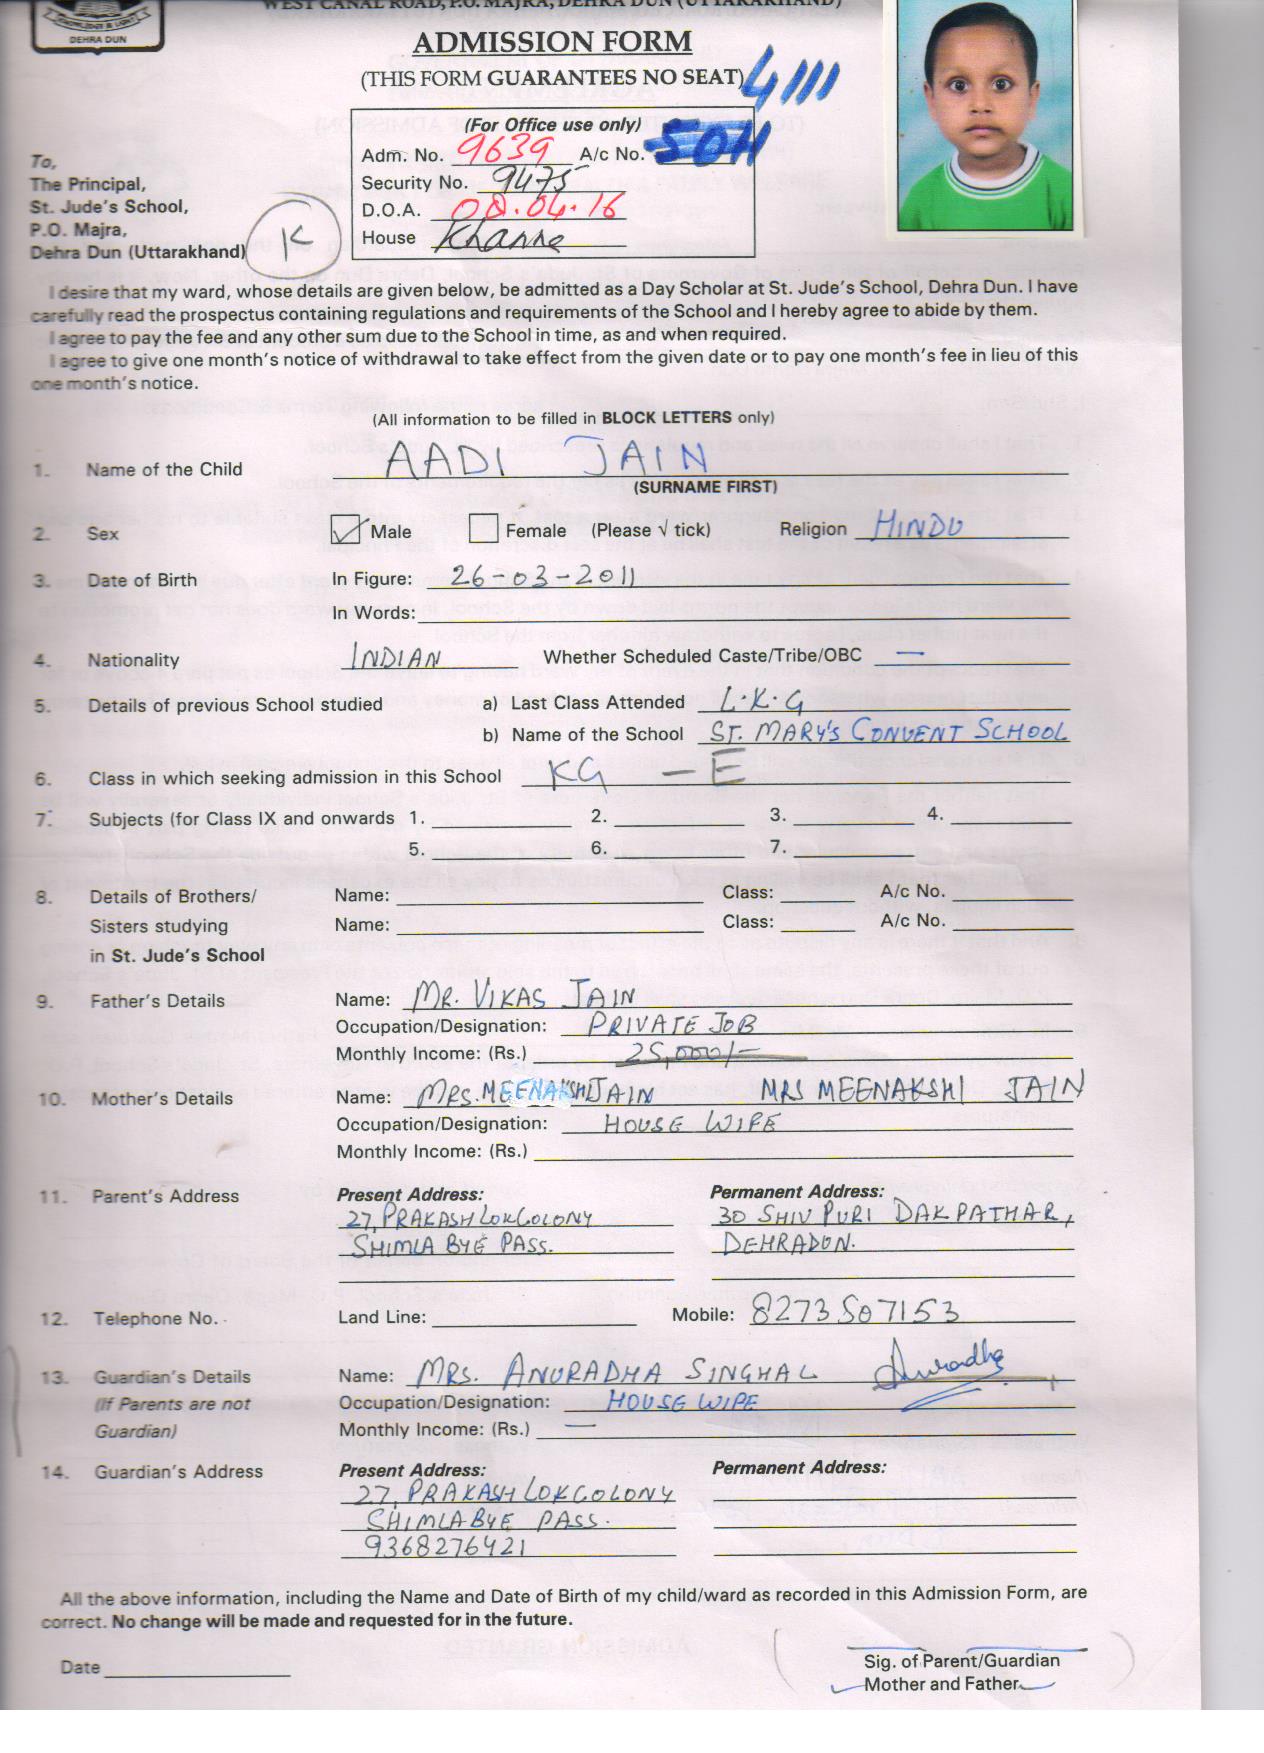 WEST CANAL ROAD, P.O. MAJRA, DEHRA DUN (UTTARAKHAND)
DEHRA DUN
ADMISSION FORM
(THIS FORM GUARANTEES NO SEAT)
4111
(For Office use only)
Adm. No. 9639 A/c No. 5011
Security No. 9475
D.O.A. 08.04.16
House Khanna
To,
The Principal,
St. Jude's School,
P.O. Majra,
Dehra Dun (Uttarakhand)
K
I desire that my ward, whose details are given below, be admitted as a Day Scholar at St. Jude's School, Dehra Dun. I have
carefully read the prospectus containing regulations and requirements of the School and I hereby agree to abide by them.
I agree to pay the fee and any other sum due to the School in time, as and when required.
I agree to give one month's notice of withdrawal to take effect from the given date or to pay one month's fee in lieu of this
one month's notice.
(All information to be filled in BLOCK LETTERS only)
1. Name of the Child AADI JAIN
(SURNAME FIRST)
2. Sex Male Female (Please √ tick) Religion HINDU
3. Date of Birth In Figure: 26-03-2011
In Words:
4. Nationality INDIAN Whether Scheduled Caste/Tribe/OBC —
5. Details of previous School studied a) Last Class Attended L.K.G
b) Name of the School ST. MARY'S CONVENT SCHOOL
6. Class in which seeking admission in this School KG - E
7. Subjects (for Class IX and onwards 1. 2. 3. 4.
5. 6. 7.
8. Details of Brothers/ Name: Class: A/c No.
Sisters studying Name: Class: A/c No.
in St. Jude's School
9. Father's Details Name: MR. VIKAS JAIN
Occupation/Designation: PRIVATE JOB
Monthly Income: (Rs.) 25,000/-
10. Mother's Details Name: MRS. MEENAKSHI JAIN MRS MEENAKSHI JAIN
Occupation/Designation: HOUSE WIFE
Monthly Income: (Rs.)
11. Parent's Address Present Address: Permanent Address:
27, PRAKASH LOK COLONY 30 SHIV PURI DAK PATHAR,
SHIMLA BYE PASS. DEHRADUN.
12. Telephone No. Land Line: Mobile: 8273507153
13. Guardian's Details Name: MRS. ANURADHA SINGHAL Anuradha
(If Parents are not Occupation/Designation: HOUSE WIFE
Guardian) Monthly Income: (Rs.) —
14. Guardian's Address Present Address: Permanent Address:
27, PRAKASH LOK COLONY
SHIMLA BYE PASS.
9368276421
All the above information, including the Name and Date of Birth of my child/ward as recorded in this Admission Form, are
correct. No change will be made and requested for in the future.
Date
Sig. of Parent/Guardian
Mother and Father